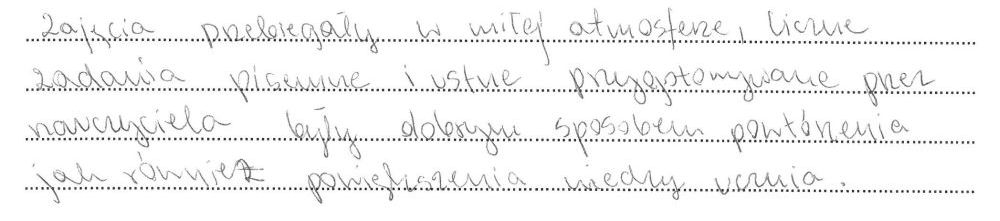 zajęcia przebiegały w miłej atmosferze, liczne
zadania pisemne i ustne przygotowywane przez
nauczyciela były dobrym sposobem powtórzenia
jak również powiększenia wiedzy ucznia.